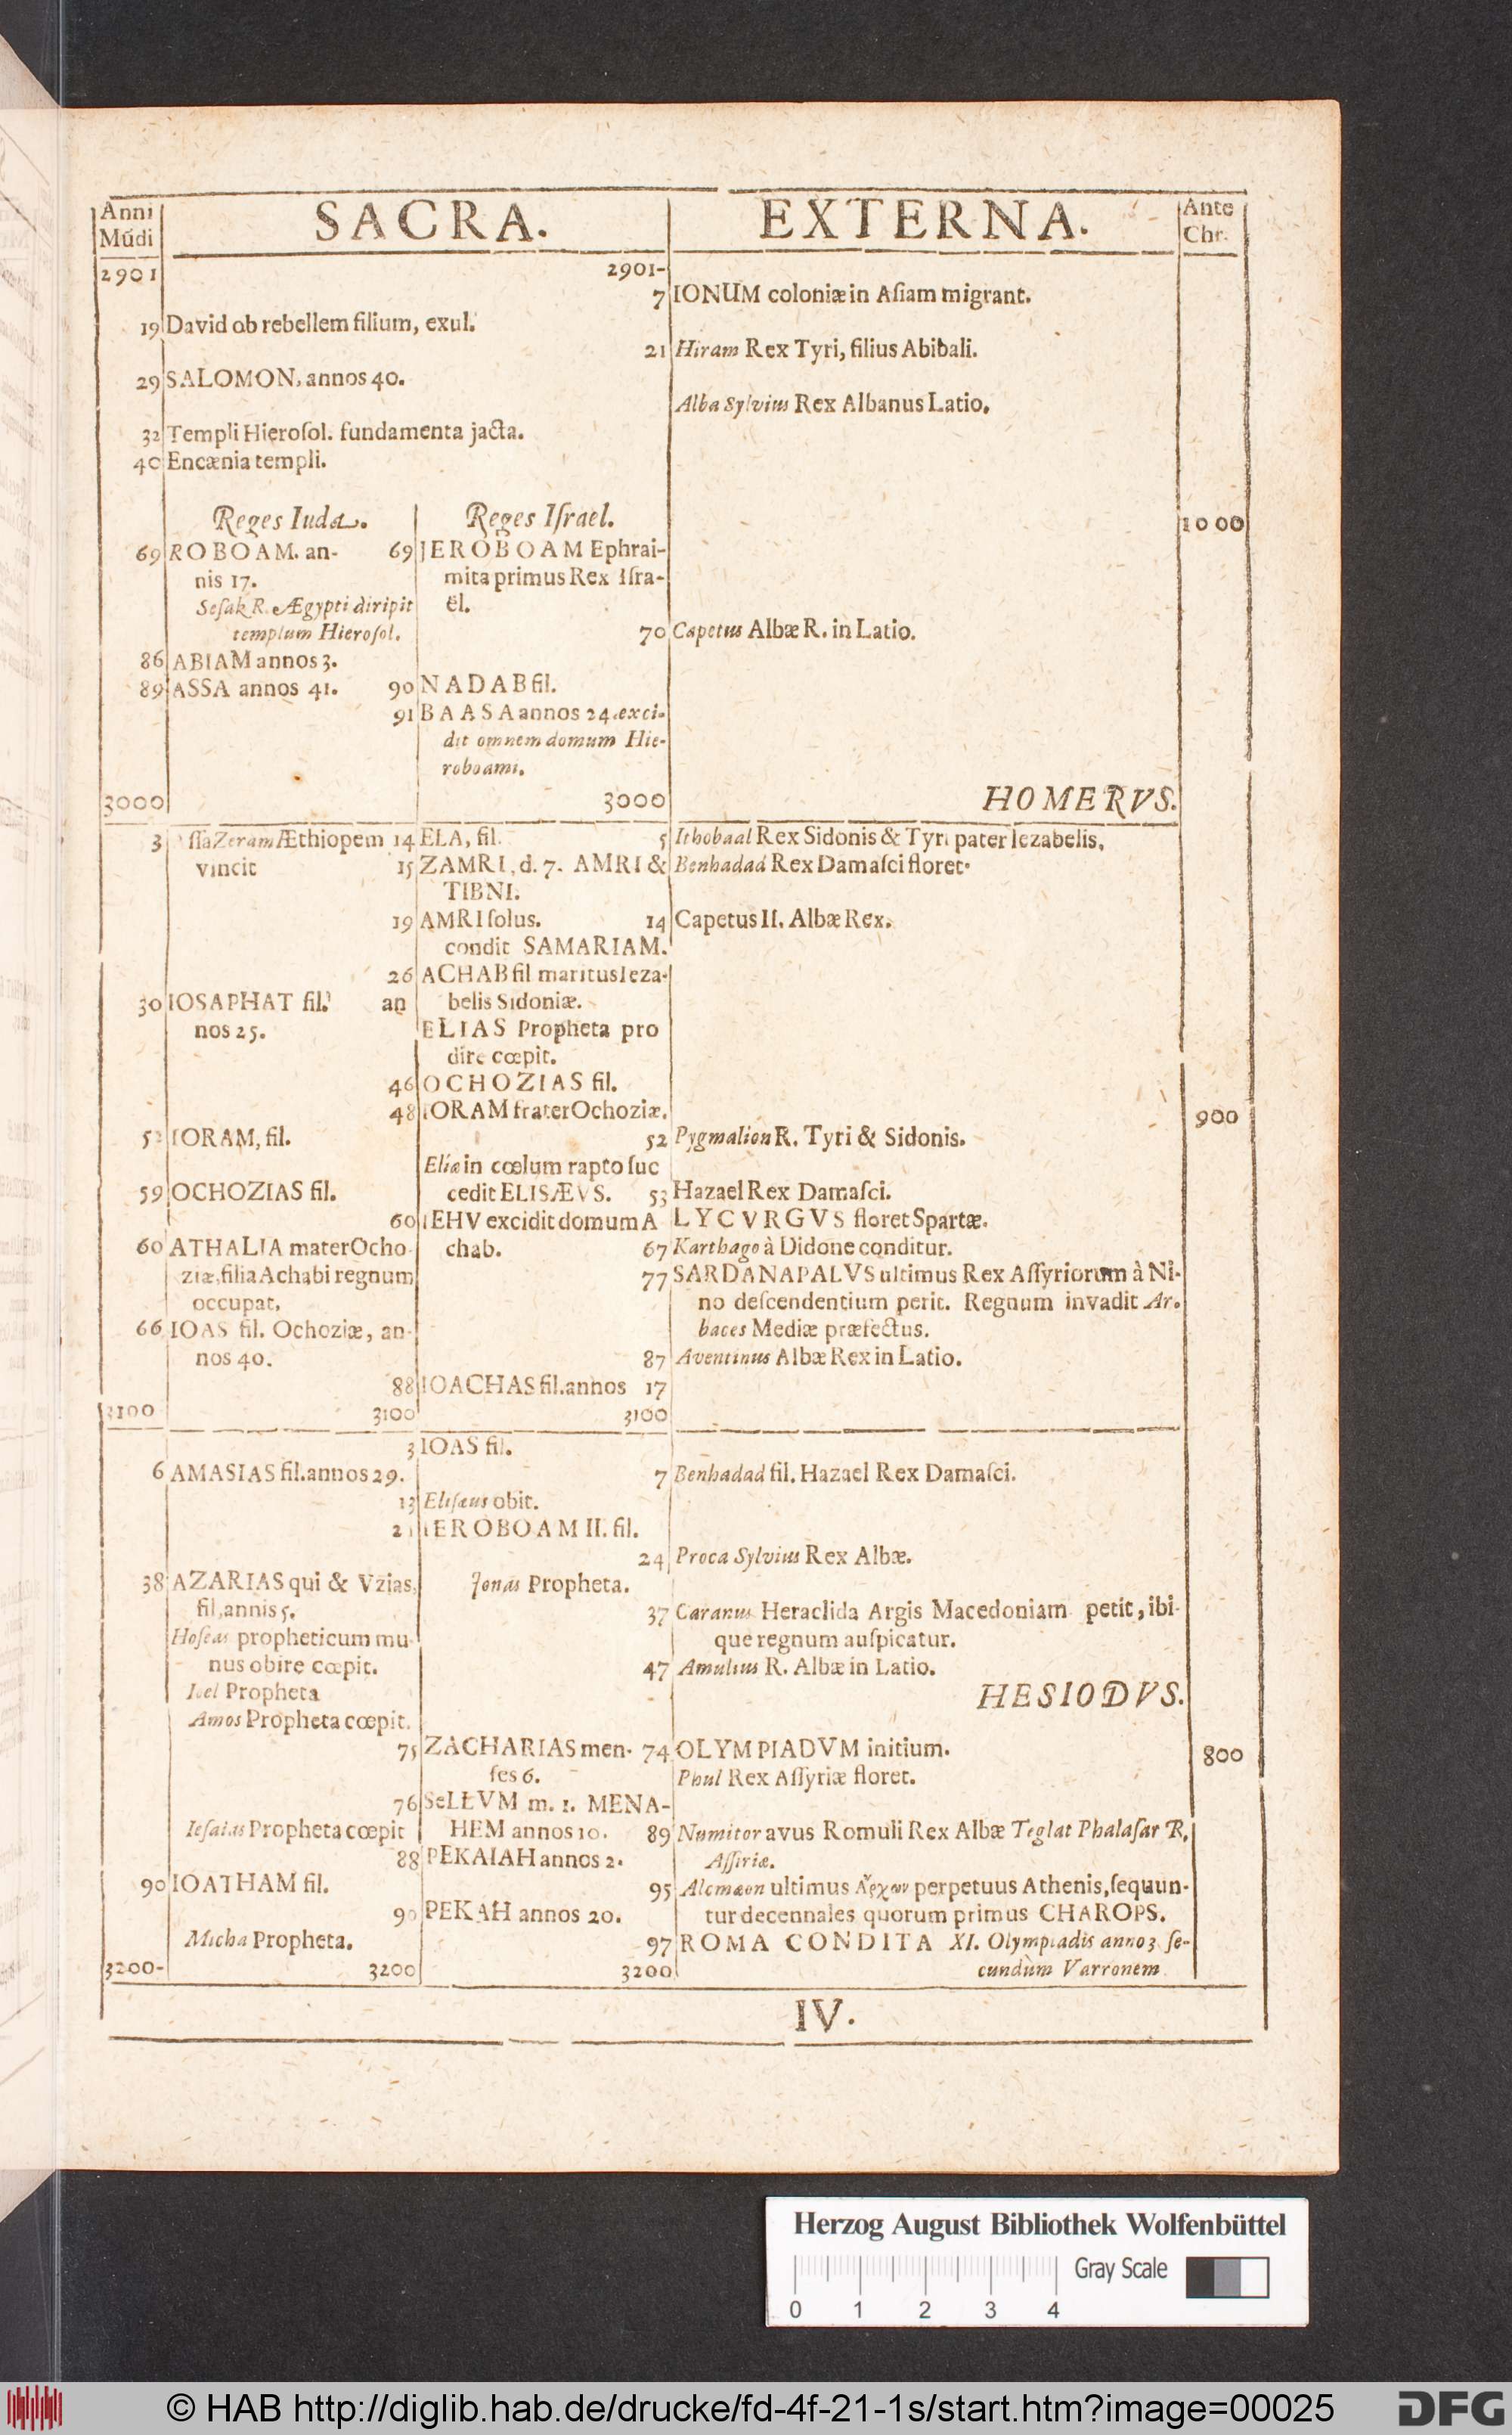 Anni
Mūdi
SACRA.
EXTERNA.
Ante
Chr.
2901
2901-
7 IONUM coloniæ in Aſiam migrant.
19 David ob rebellem filium, exul.
21 Hiram Rex Tyri, filius Abibali.
29 SALOMON, annos 40.
Alba Sylvius Rex Albanus Latio.
32 Templi Hieroſol. fundamenta jacta.
40 Encænia templi.
Reges Iudæ. Reges Iſrael.
1000
69 ROBOAM. an- 69 JEROBOAM Ephrai-
nis 17. mita primus Rex Iſra-
Seſak R. Ægypti diripit ël.
templum Hieroſol. 70 Capetus Albæ R. in Latio.
86 ABIAM annos 3.
89 ASSA annos 41. 90 NADAB fil.
91 BAASA annos 24. exci-
dit omnem domum Hie-
roboami.
3000 3000 HOMERVS.
3 ſſa Zeram Æthiopem 14 ELA, fil. 5 Ithobaal Rex Sidonis & Tyri pater Iezabelis,
vincit 15 ZAMRI, d. 7. AMRI & Benhadad Rex Damaſci floret.
TIBNI.
19 AMRI ſolus. 14 Capetus II. Albæ Rex.
condit SAMARIAM.
26 ACHAB fil maritus Ieza-
30 IOSAPHAT fil. an belis Sidoniæ.
nos 25. ELIAS Propheta pro
dire cœpit.
46 OCHOZIAS fil.
48 IORAM frater Ochoziæ.
900
IORAM, fil. 52 Pygmalion R. Tyri & Sidonis.
Elia in cœlum rapto ſuc
59 OCHOZIAS fil. cedit ELISÆVS. 53 Hazael Rex Damaſci.
60 IEHV excidit domum A LYCVRGVS floret Spartæ.
60 ATHALIA mater Ocho chab. 67 Karthago à Didone conditur.
ziæ, filia Achabi regnum 77 SARDANAPALVS ultimus Rex Aſſyriorum à Ni-
occupat, no deſcendentium perit. Regnum invadit Ar-
66 IOAS fil. Ochoziæ, an- baces Mediæ præfectus.
nos 40. 87 Aventinus Albæ Rex in Latio.
88 IOACHAS fil. annos 17
3100 3100 3100
3 IOAS fil.
6 AMASIAS fil. annos 29. 7 Benhadad fil. Hazael Rex Damaſci.
13 Eliſæus obit.
IEROBOAM II. fil.
24 Proca Sylvius Rex Albæ.
38 AZARIAS qui & Vzias, Jonas Propheta.
fil, annis 5. 37 Caranus Heraclida Argis Macedoniam petit, ibi-
Hoſeas propheticum mu- que regnum auſpicatur.
nus obire cœpit. 47 Amulius R. Albæ in Latio.
Ioel Propheta HESIODVS.
Amos Propheta cœpit.
75 ZACHARIAS men- 74 OLYMPIADVM initium. 800
ſes 6. Phul Rex Aſſyriæ floret.
76 SeLLVM m. 1. MENA-
Ieſaias Propheta cœpit HEM annos 10. 89 Numitor avus Romuli Rex Albæ Teglat Phalaſar R.
88 PEKAIAH annos 2. Aſſiriæ.
90 IOATHAM fil. 95 Alcmæon ultimus Ἄρχων perpetuus Athenis, ſequun-
90 PEKAH annos 20. tur decennales quorum primus CHAROPS.
Micha Propheta. 97 ROMA CONDITA XI. Olympiadis anno 3. ſe-
3200- 3200 3200 cundùm Varronem
IV.
Herzog August Bibliothek Wolfenbüttel
Gray Scale
0 1 2 3 4
© HAB http://diglib.hab.de/drucke/fd-4f-21-1s/start.htm?image=00025
DFG